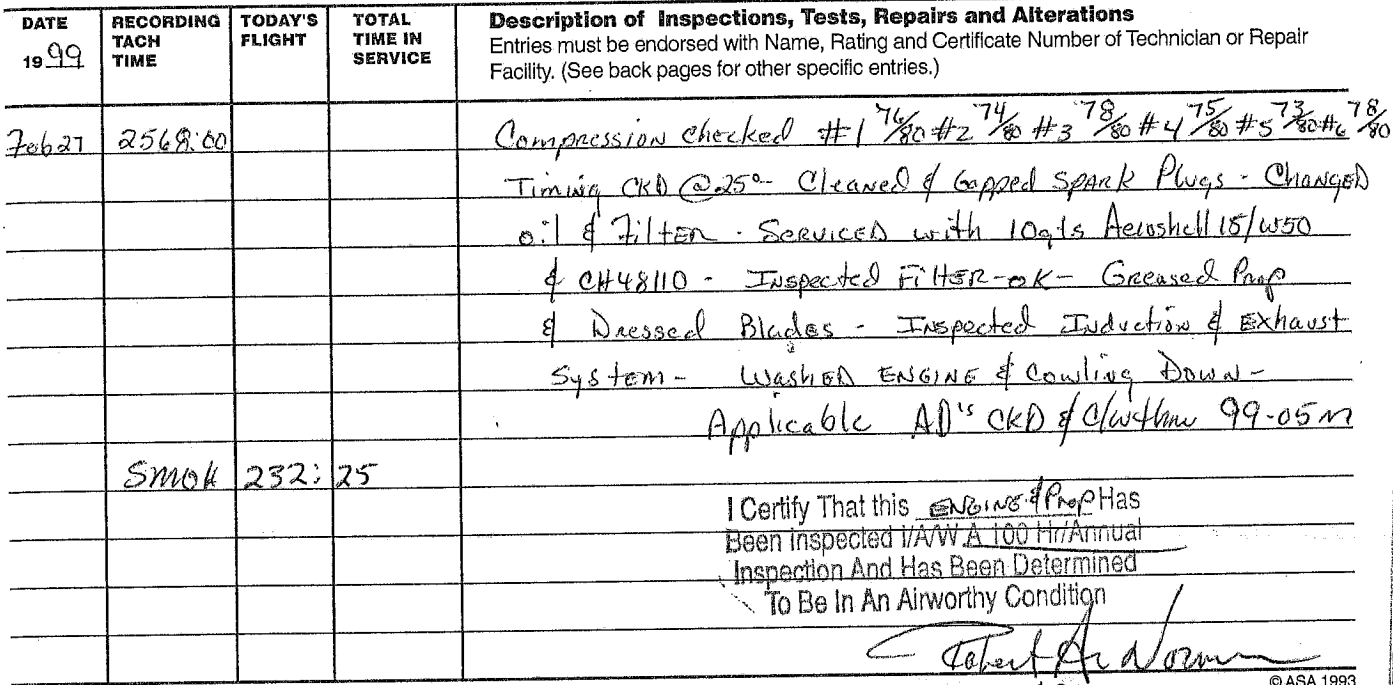 DATE 1999 RECORDING TACH TIME TODAY'S FLIGHT TOTAL TIME IN SERVICE
Description of Inspections, Tests, Repairs and Alterations
Entries must be endorsed with Name, Rating and Certificate Number of Technician or Repair
Facility. (See back pages for other specific entries.)
Feb 27 2568:00 Compression checked #1 76/80 #2 74/80 #3 78/80 #4 75/80 #5 73/80 #6 78/80
Timing CKD @ 25° - Cleaned & Gapped Spark Plugs - Changed
oil & Filter - Serviced with 10qts Aeroshell 15/W50
& CH48110 - Inspected Filter-ok- Greased Prop
& Dressed Blades - Inspected Induction & Exhaust
System - Washed Engine & Cowling Down -
Applicable AD's CKD & C/W thru 99-05
SMOH 232:25
I Certify That this ENGINE & Prop Has
Been Inspected I/A/W A 100 Hr/Annual
Inspection And Has Been Determined
To Be In An Airworthy Condition
Robert Norman
© ASA 1993